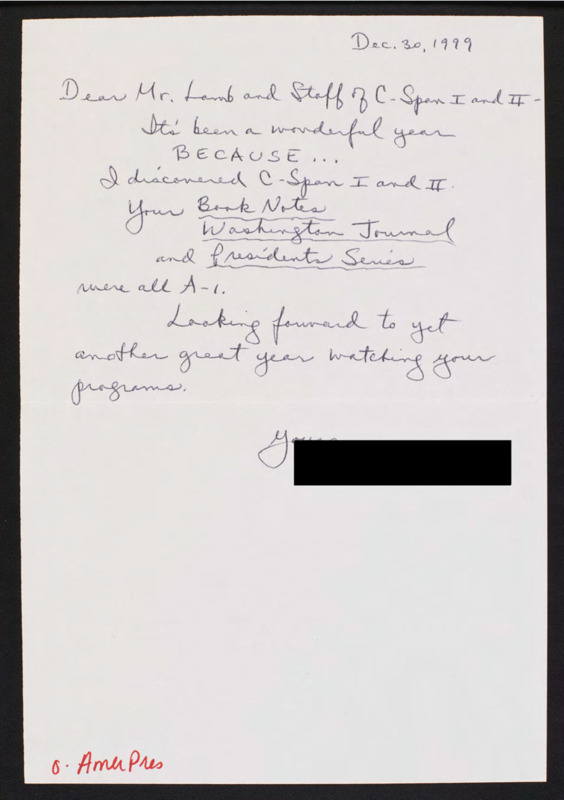 Dec. 30, 1999
Dear Mr. Lamb and Staff of C-Span I and II -
It's been a wonderful year
BECAUSE...
I discovered C-Span I and II.
Your Book Notes
Washington Journal
and Presidents Series
were all A-1.
Looking forward to yet
another great year watching your
programs.
o. AmerPres